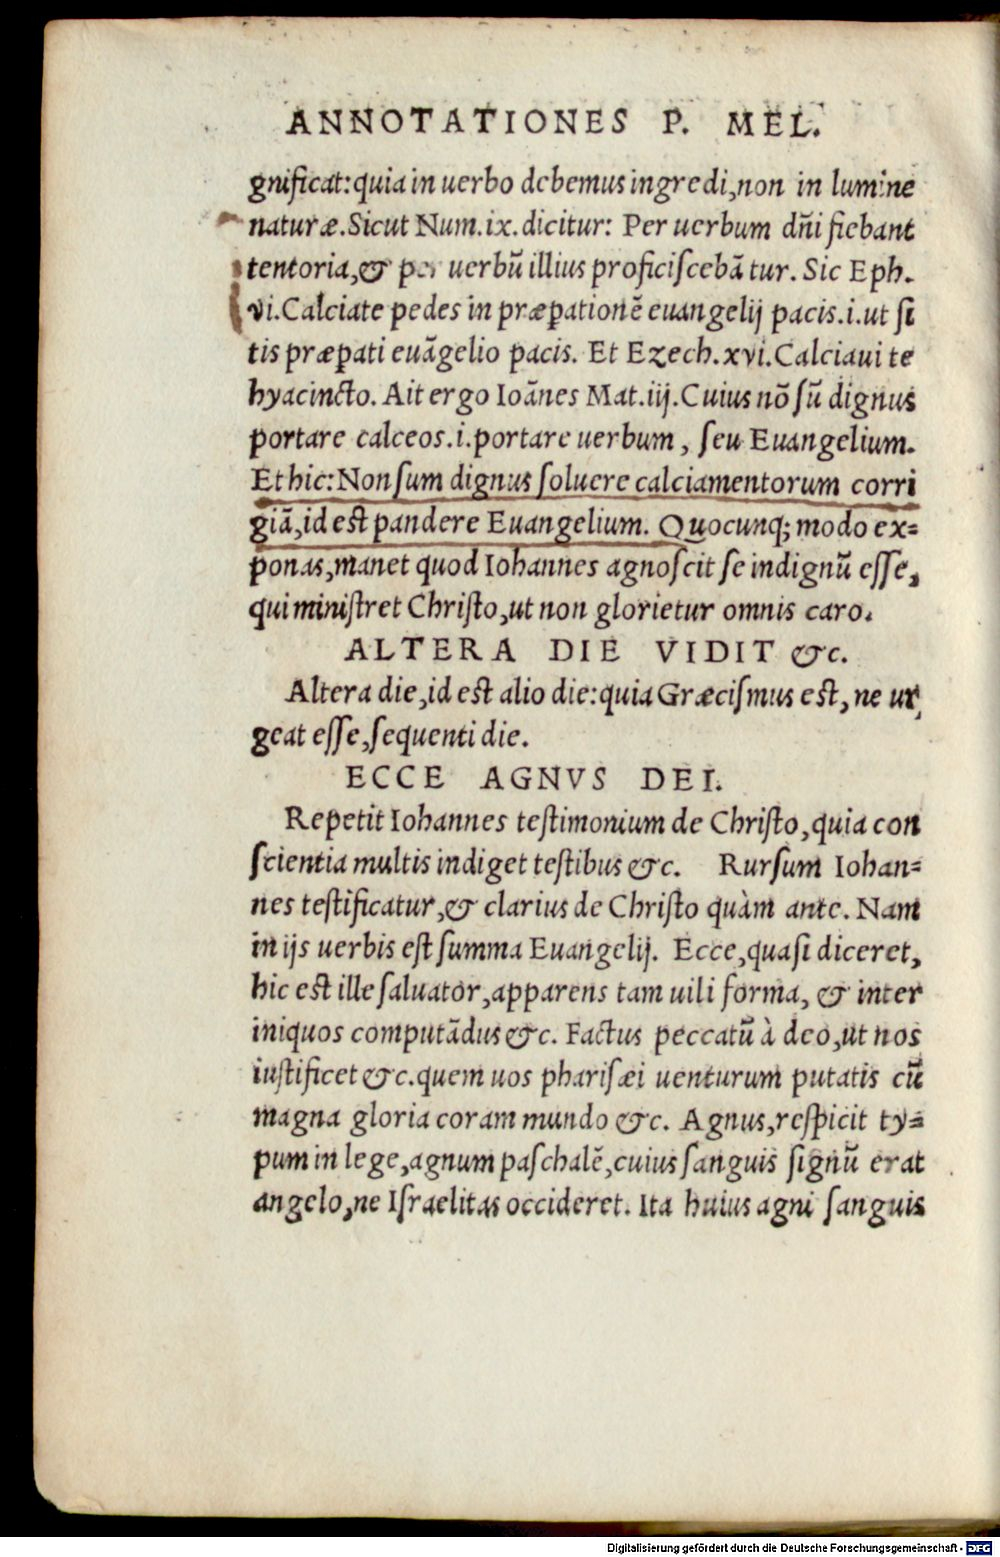 ANNOTATIONES P. MEL.
gnificat: quia in uerbo debemus ingredi, non in lumine
naturæ. Sicut Num. ix. dicitur: Per uerbum dñi fiebant
tentoria, & per uerbũ illius proficiscebã tur. Sic Eph.
vi. Calciate pedes in præpationẽ euangelij pacis. i. ut si
tis præpati euãgelio pacis. Et Ezech. xvi. Calciaui te
hyacincto. Ait ergo Ioãnes Mat. iij. Cuius nõ sũ dignus
portare calceos. i. portare uerbum, seu Euangelium.
Et hic: Non sum dignus soluere calciamentorum corri
giã, id est pandere Euangelium. Quocunq; modo ex=
ponas, manet quod Iohannes agnoscit se indignũ esse,
qui ministret Christo, ut non glorietur omnis caro.
ALTERA DIE VIDIT &c.
Altera die, id est alio die: quia Græcismus est, ne ur,
geat esse, sequenti die.
ECCE AGNVS DEI.
Repetit Iohannes testimonium de Christo, quia con
scientia multis indiget testibus &c. Rursum Iohan=
nes testificatur, & clarius de Christo quàm ante. Nam
in ijs uerbis est summa Euangelij. Ecce, quasi diceret,
hic est ille saluator, apparens tam uili forma, & inter
iniquos computãdus &c. Factus peccatũ à deo, ut nos
iustificet &c. quem uos pharisæi uenturum putatis cũ
magna gloria coram mundo &c. Agnus, respicit ty=
pum in lege, agnum paschalẽ, cuius sanguis signũ erat
angelo, ne Israelitas occideret. Ita huius agni sanguis
Digitalisierung gefördert durch die Deutsche Forschungsgemeinschaft - DFG